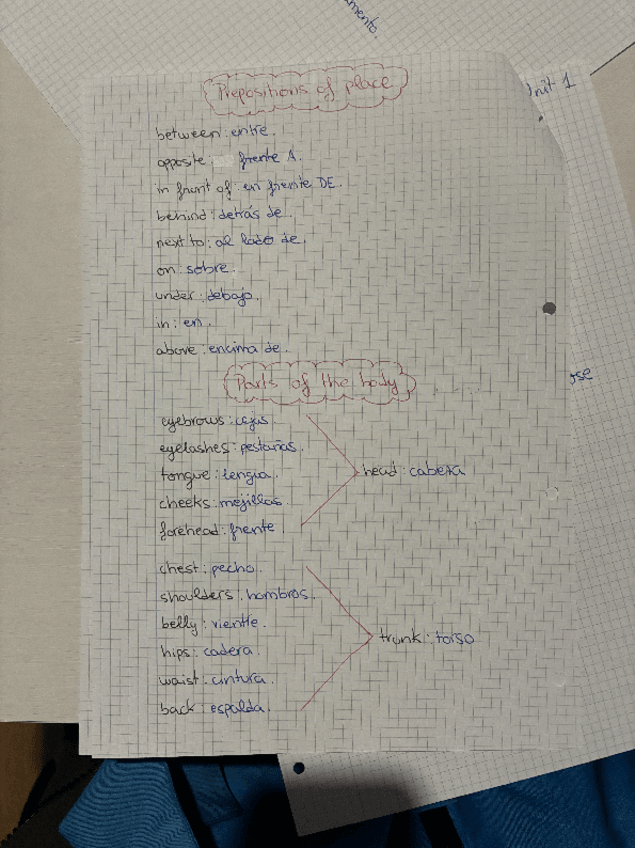 mento.
Prepositions of place
Unit 1
between: entre.
opposite: frente A.
in front of: en frente DE.
behind: detrás de.
next to: al lado de.
on: sobre.
under: debajo.
in: en.
above: encima de.
Parts of the body
eyebrows: cejas.
eyelashes: pestañas.
tongue: lengua.
head: cabeza
cheeks: mejillas.
forehead: frente
chest: pecho.
shoulders: hombros.
belly: vientre.
trunk: torso
hips: cadera.
waist: cintura.
back: espalda.